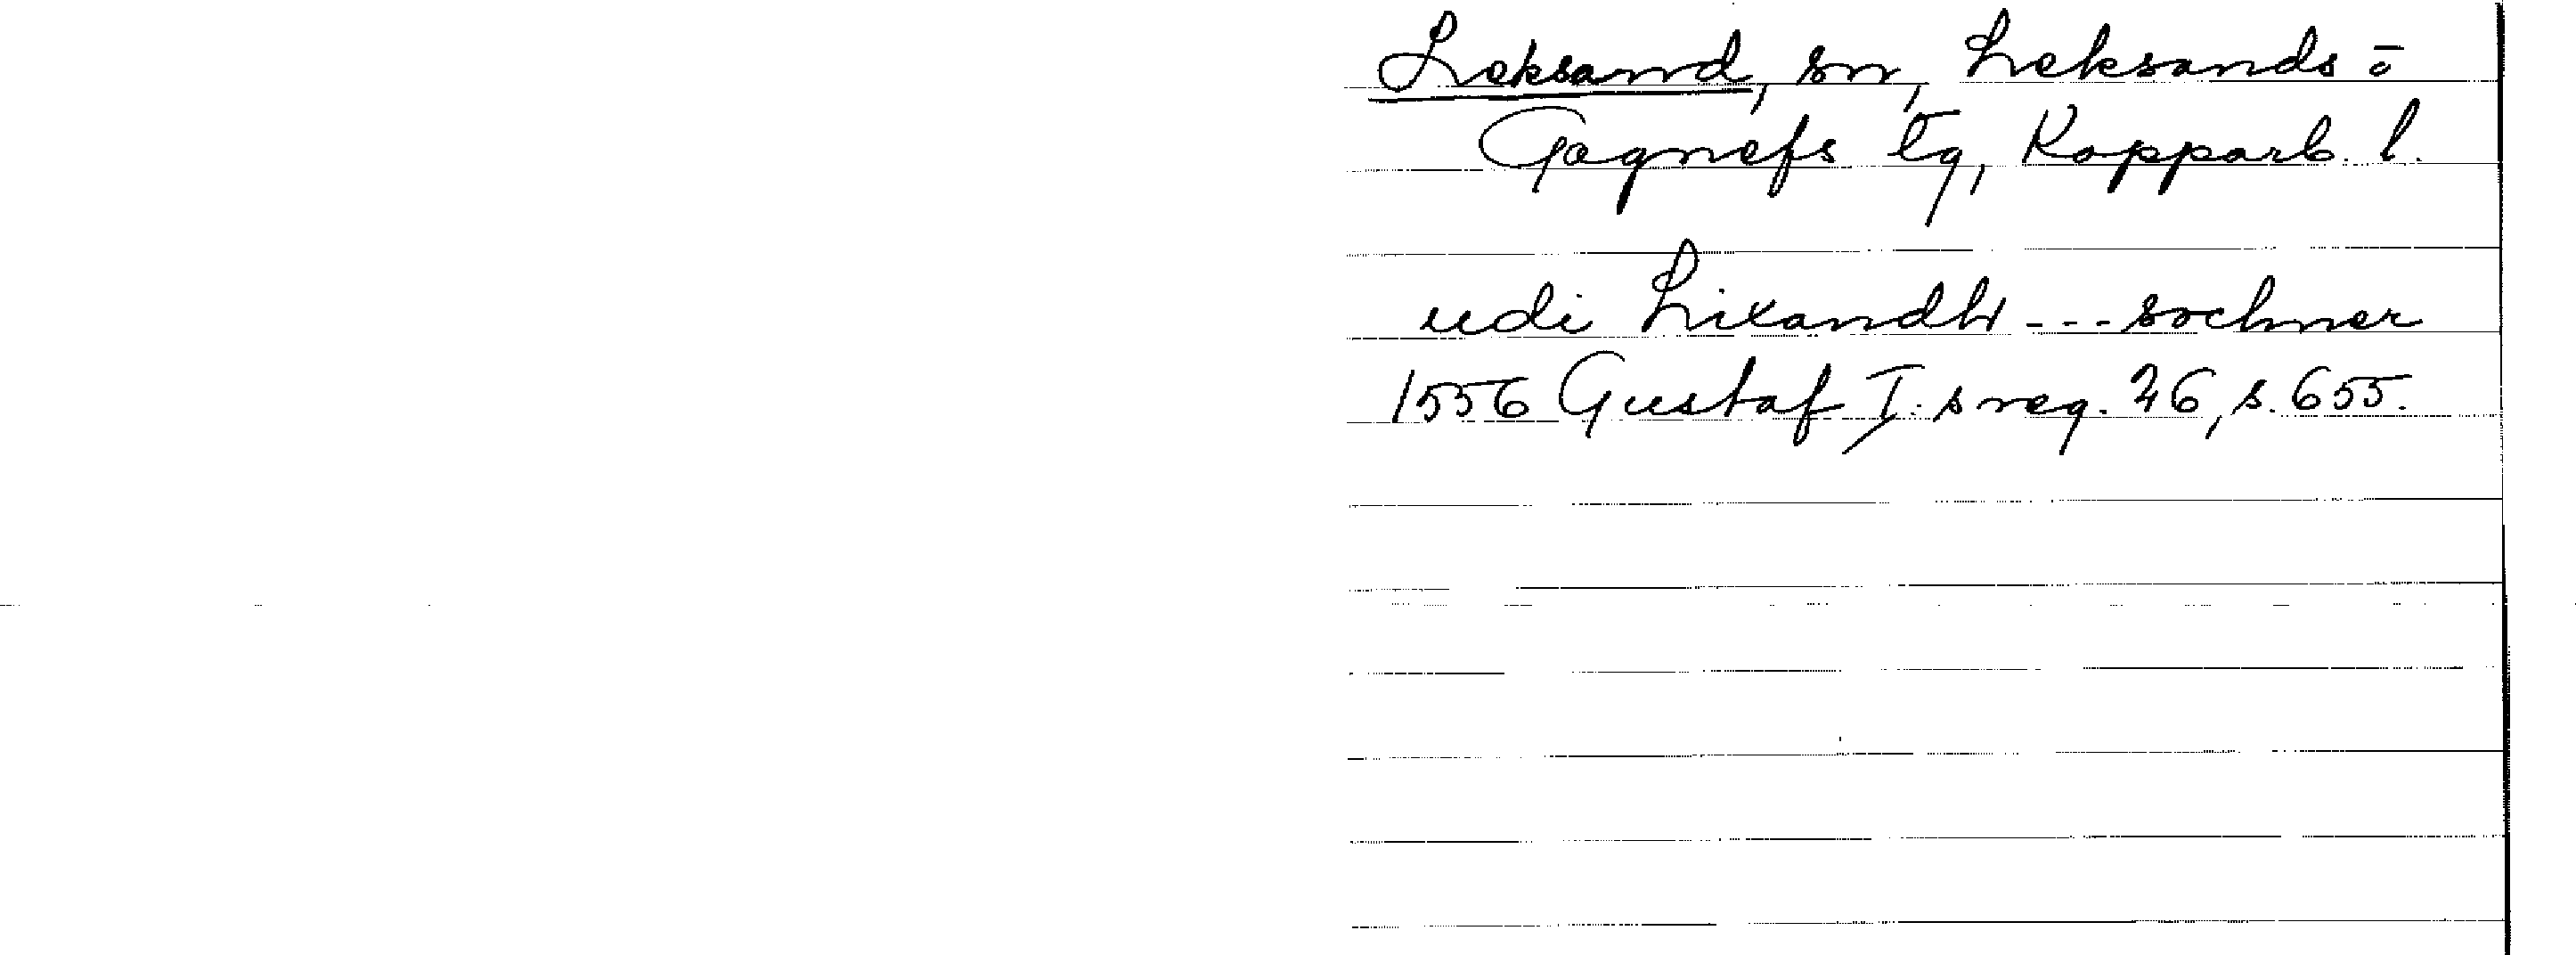 Leksand, sn, Leksands- o
Gagnefs tg, Kopparb. l.
udi Lixandh --- sochner
1556 Gustaf I:s reg. 26, s. 655.